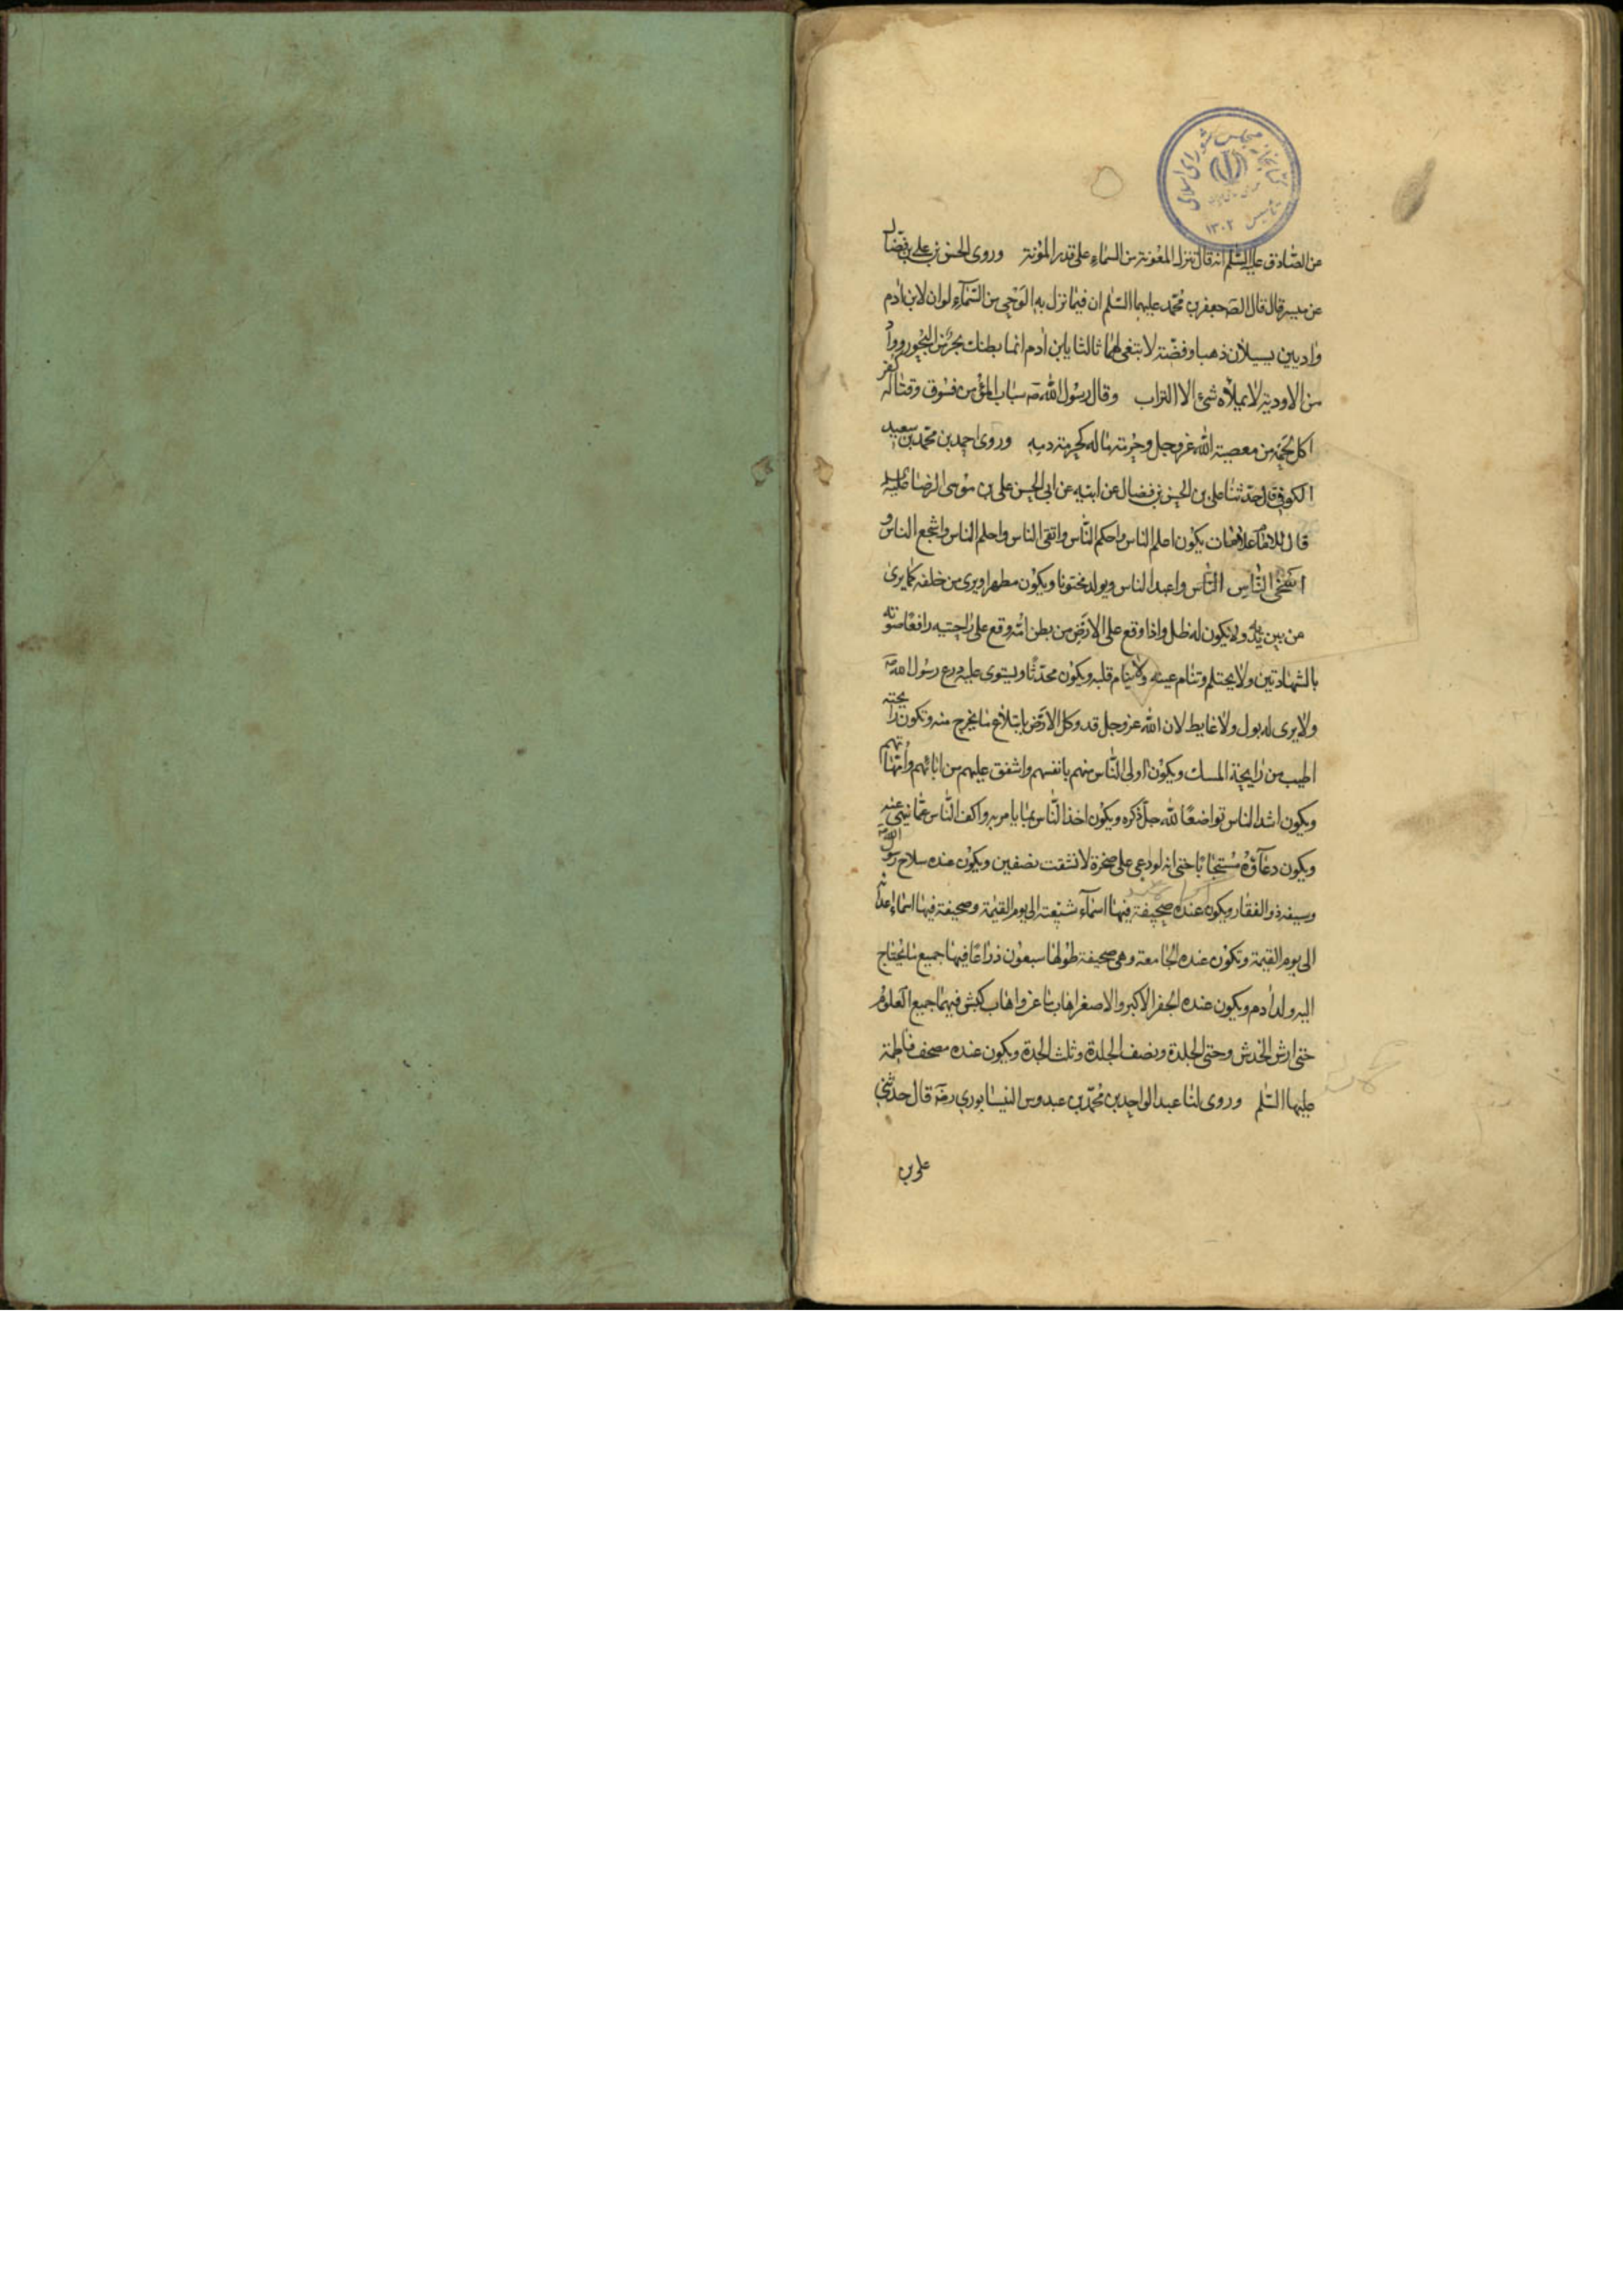 كتابخانه مجلس شورای اسلامی
تأسیس ۱۳۰۲
عن الصّادق عليه السّلم انه قال تنزل المعونة من السماء على قدر المؤنة وروى الحسن بن علي بن فضال
عن ميسر قال قال الصّ جعفر بن محمّد عليهما السّلم ان فيما نزل به الوحى من السّمآء لو ان لابن ادم
واديين يسيلان ذهبا وفضّة لابتغى لهما ثالثا يابن ادم انما بطنك بحر من البحور وواد
من الاودية لا يملاه شئ الا التراب وقال رسول الله صّ سباب المؤمن فسوق وقتاله كفر
اكل لحمه من معصية الله عز وجل وحرمة ماله كحرمة دمه وروى احمد بن محمّد بن سعيد
الكوفى قال حدّثنا على بن الحسن بن فضال عن ابيه عن ابى الحسن على بن موسى الرضا عليه السلم
قال للامام علامات يكون اعلم الناس واحكم النّاس واتقى الناس واحلم الناس واشجع الناس و
اسخى النّاس النّاس واعبد الناس ويولد مختونا ويكون مطهرا ويرى من خلفه كما يرى
من بين يديه ولا يكون له ظل واذا وقع على الارض من بطن امّه وقع على راحتيه رافعًا صوته
بالشهادتين ولا يحتلم وتنام عينه ولا ينام قلبه ويكون محدّثا ويستوى عليه درع رسول الله صّ
ولا يرى له بول ولا غايط لان الله عز وجل قد وكل الارض بابتلاع ما يخرج منه وتكون رايحته
اطيب من رايحة المسك ويكون اولى النّاس منهم بانفسهم واشفق عليهم من ابائهم وامّهاتهم
ويكون اشد الناس تواضعًا لله جلّ ذكره ويكون اخذ النّاس بما يامر به واكف النّاس عمّا نهى عنه
ويكون دعآؤه مستجابًا حتى انه لو دعى على صخرة لانشقت نصفين ويكون عنده سلاح رسول الله صّ
وسيفه ذو الفقار ويكون عنده صحيفة فيها اسمآء شيعته الى يوم القيمة وصحيفة فيها اسماء اعدائه
الى يوم القيمة وتكون عنده الجامعة وهى صحيفة طولها سبعون ذراعًا فيها جميع ما يحتاج
اليه ولد ادم ويكون عنده الجفر الاكبر والاصغر اهاب ماعز واهاب كبش فيهما جميع العلوم
حتى ارش الخدش وحتى الجلدة ونصف الجلدة وثلث الجلدة ويكون عنده مصحف فاطمة
عليها السّلم وروى لنا عبد الواحد بن محمّد بن عبدوس النيسابوري رضّ قال حدثنى
على بن